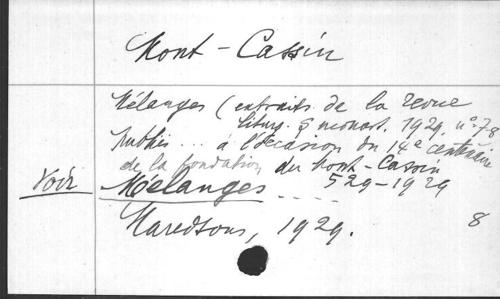 Mont-Cassin
Mélanges (extraits de la revue
liturg. & monast. 1929. n° 7-8
publiés ... à l'occasion du 14e centenaire
de la fondation du Mont-Cassin
529-1929
Voir Mélanges .....
Maredsous, 1929. 8